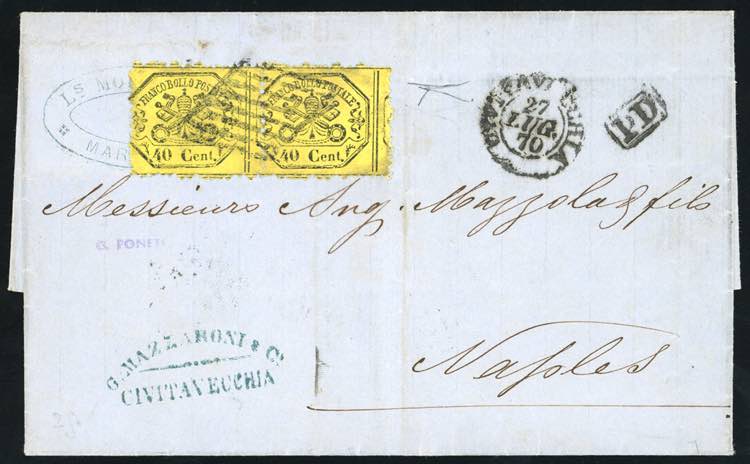 LS MO
MAR
FRANCO BOLLO POSTALE
40 Cent.
FRANCO BOLLO POSTALE
40 Cent.
CIVITAVECCHIA
27
LUG.
70
PD
Messieurs Ang. Mazzola & fils
G. PONET
Naples
G. MAZZARONI & C.
CIVITAVECCHIA